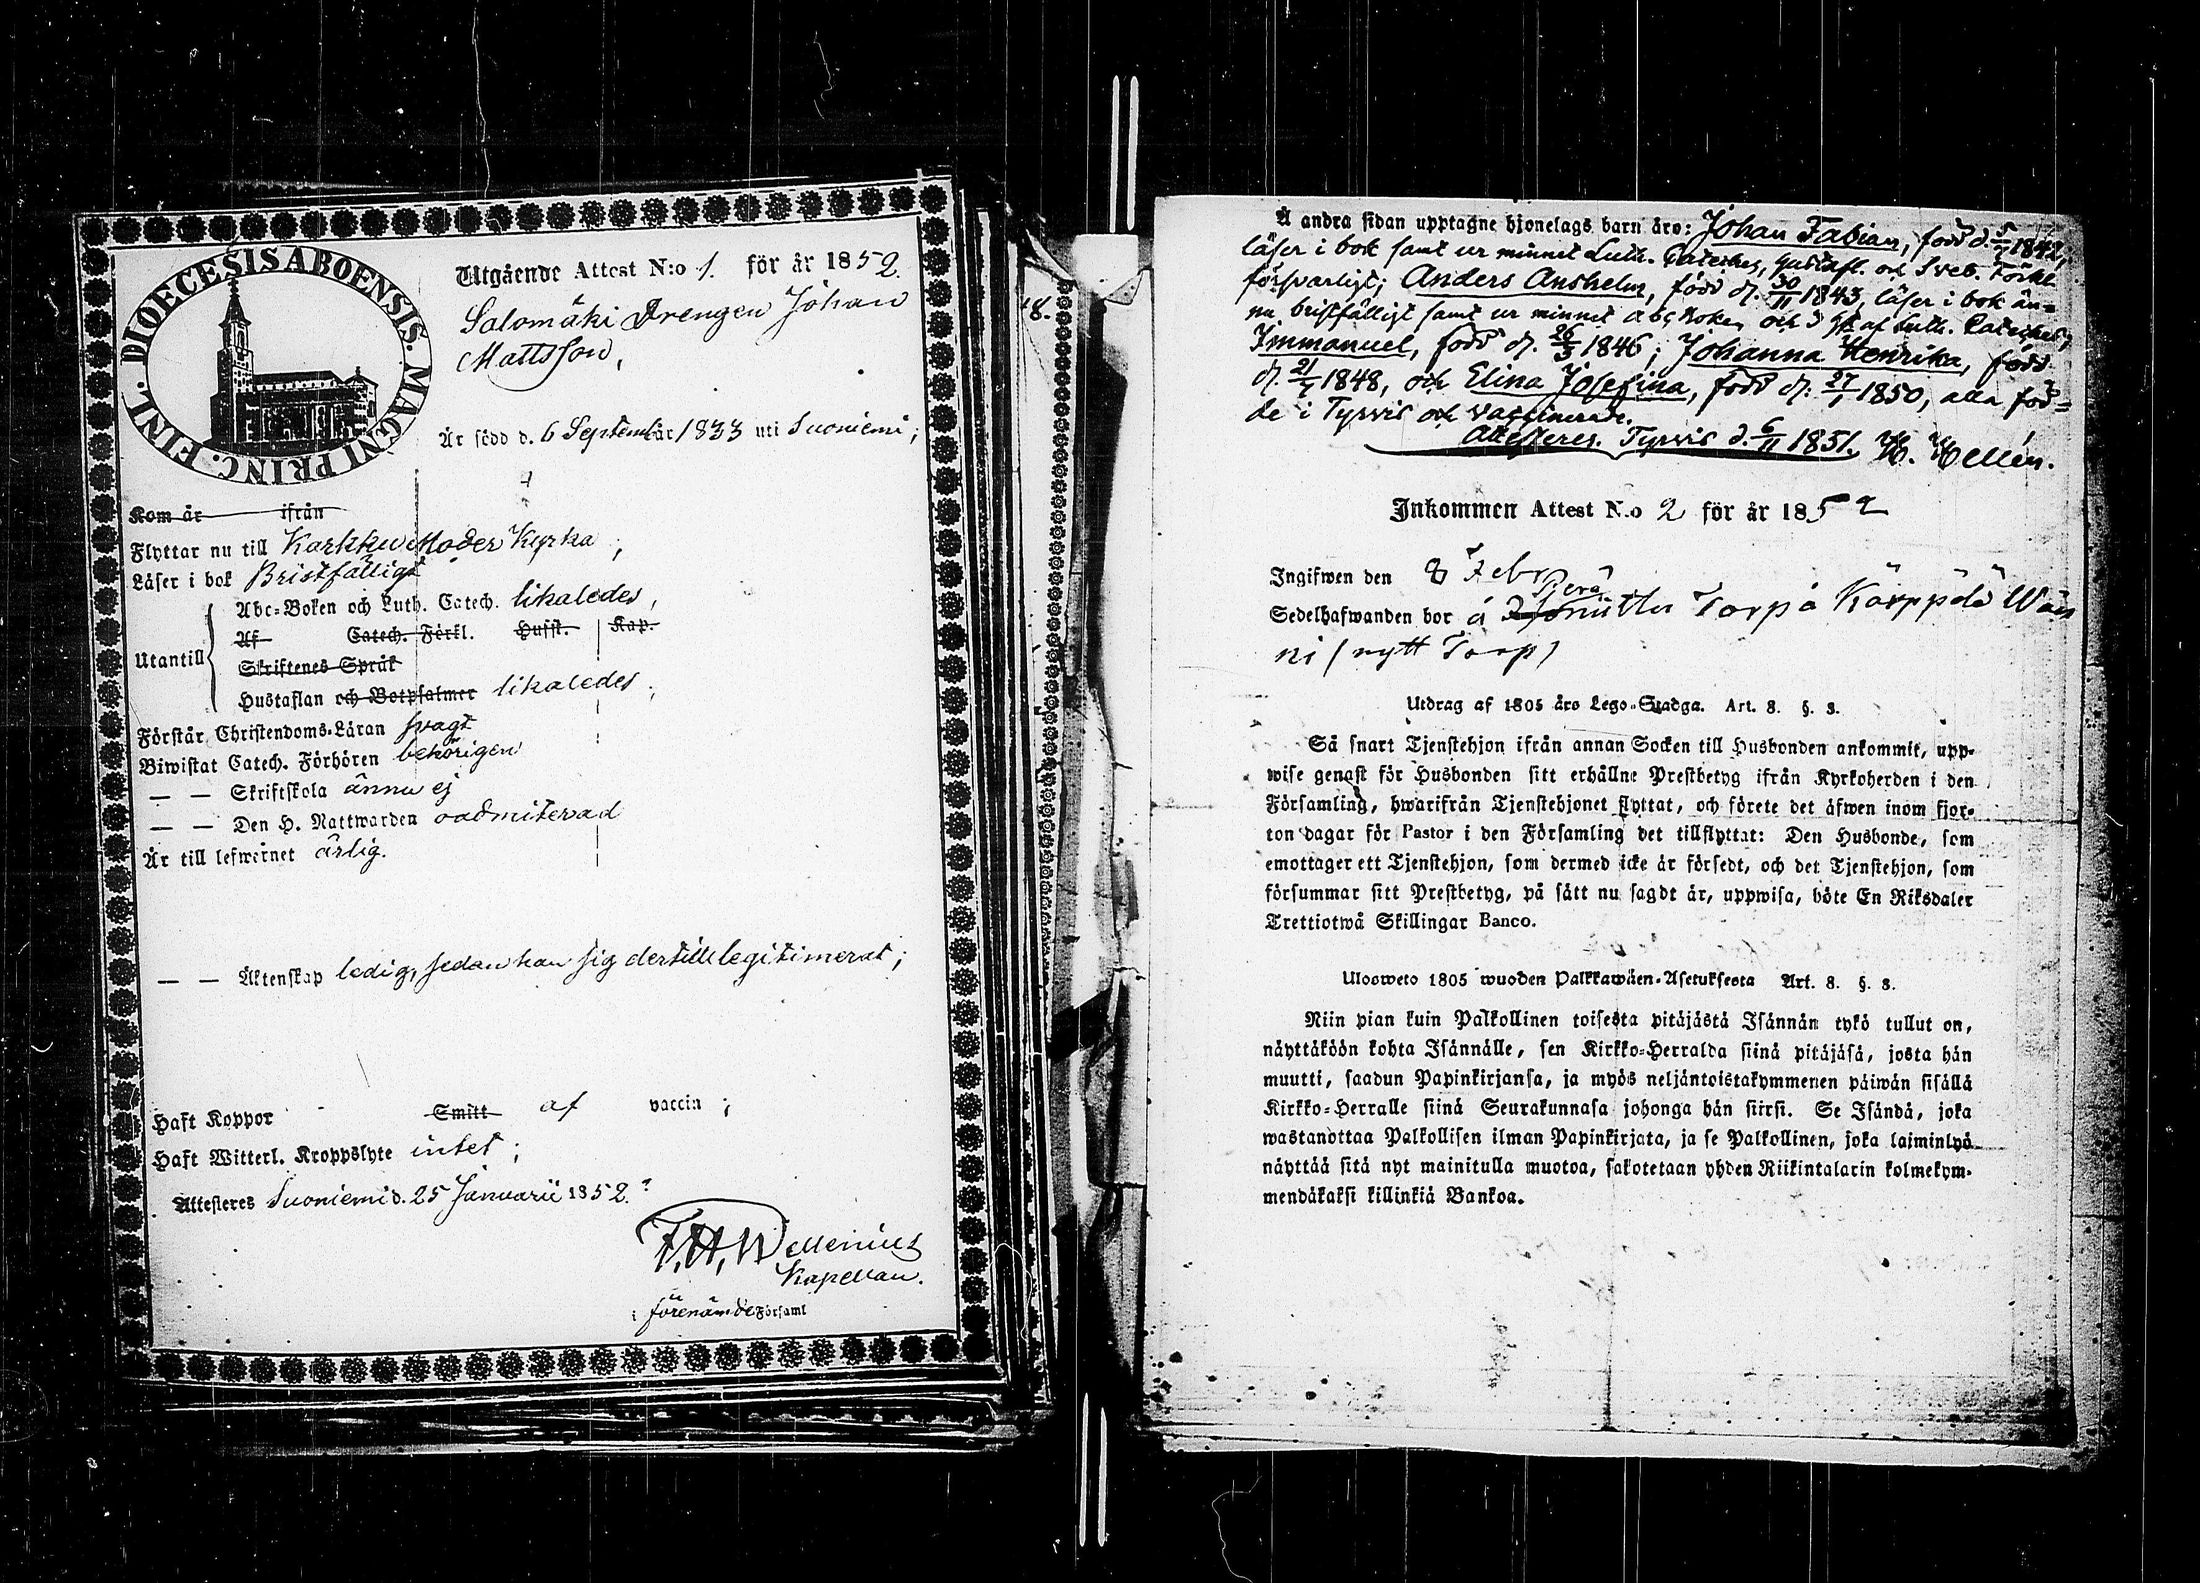 DIOECESIS ABOENSIS. MAGNI PRINC. FINL.
Utgående Attest N:o 1. för år 1852.
Salomäki Drengen Johan
Mattsson,
Är född d. 6 September år 1833 uti Suoniemi;
Kom år ifrån
Flyttar nu till Karkku Moder Kyrka;
Läser i bok Bristfälligt
Abc-Boken och Luth. Catech. likaledes,
Af Catech. Förkl. Husst. Kap.
Utantill
Skriftenes Språk
Hustaflan och Botpsalmer likaledes;
Förstår Christendoms-Läran svagt
Biwistat Catech. Förhören behörigen
— — Skriftskola ännu ej
— — Den H. Nattwarden oadmiterad
Är till lefwernet ärlig.
— — Äktenskap ledig, sedan han sig dertill legitimerat;
Haft Koppor Smitt af vaccin;
Haft Witterl. Kroppslyte intet;
Attesteres Suoniemi d. 25 Januarii 1852.
F. H. Wellenius
Kapellan.
i förenämde Församl
48.
Å andra sidan upptagne hjonelags barn äro: Johan Fabian, född d. 5/7 1842,
läser i bok samt ur minnet Luth. Cateches, Hustafl. och Sveb. Förkl.
försvarligt; Anders Anshelm, född d. 30/11 1843, läser i bok än-
nu bristfälligt samt ur minnet abc boken och 3 af Luth. Cateches;
Immanuel, född d. 26/3 1846; Johanna Henrika, född
d. 21/1 1848, och Elina Josefina, född d. 27/1 1850, alla föd-
de i Tyrvis och vaccinerade.
Attesteres. Tyrvis d. 6/11 1851. H. Hellén.
Inkommen Attest N:o 2 för år 1852
Ingifwen den 8 Febr
Perä
Sedelhafwanden bor å Torp å Körppölä Wäi
ni (nytt Torp)
Utdrag af 1805 års Lego-Stadga. Art. 8. §. 3.
Så snart Tjenstehjon ifrån annan Socken till Husbonden ankommit, upp-
wise genast för Husbonden sitt erhållne Prestbetyg ifrån Kyrkoherden i den
Församling, hwarifrån Tjenstehjonet flyttat, och förete det äfwen inom fjor-
ton dagar för Pastor i den Församling det tillflyttat: Den Husbonde, som
emottager ett Tjenstehjon, som dermed icke är försedt, och det Tjenstehjon, som
försummar sitt Prestbetyg, på sätt nu sagdt är, uppwisa, böte En Riksdaler
Trettiotwå Skillingar Banco.
Ulosweto 1805 wuoden Palkkawäen-Asetuksesta Art. 8. §. 3.
Niin pian kuin Palkollinen toisesta pitäjästä Isännän tykö tullut on,
näyttäköön kohta Isännälle, sen Kirkko-Herralda siinä pitäjäsä, josta hän
muutti, saadun Papinkirjansa, ja myös neljäntoistakymmenen päiwän sisällä
Kirkko-Herralle siinä Seurakunnasa johonga hän siirsi. Se Isändä, joka
wastanottaa Palkollisen ilman Papinkirjata, ja se Palkollinen, joka laiminlyö
näyttää sitä nyt mainitulla muotoa, sakotetaan yhden Riikintalarin kolmekym-
mendäkaksi killinkiä Bankoa.